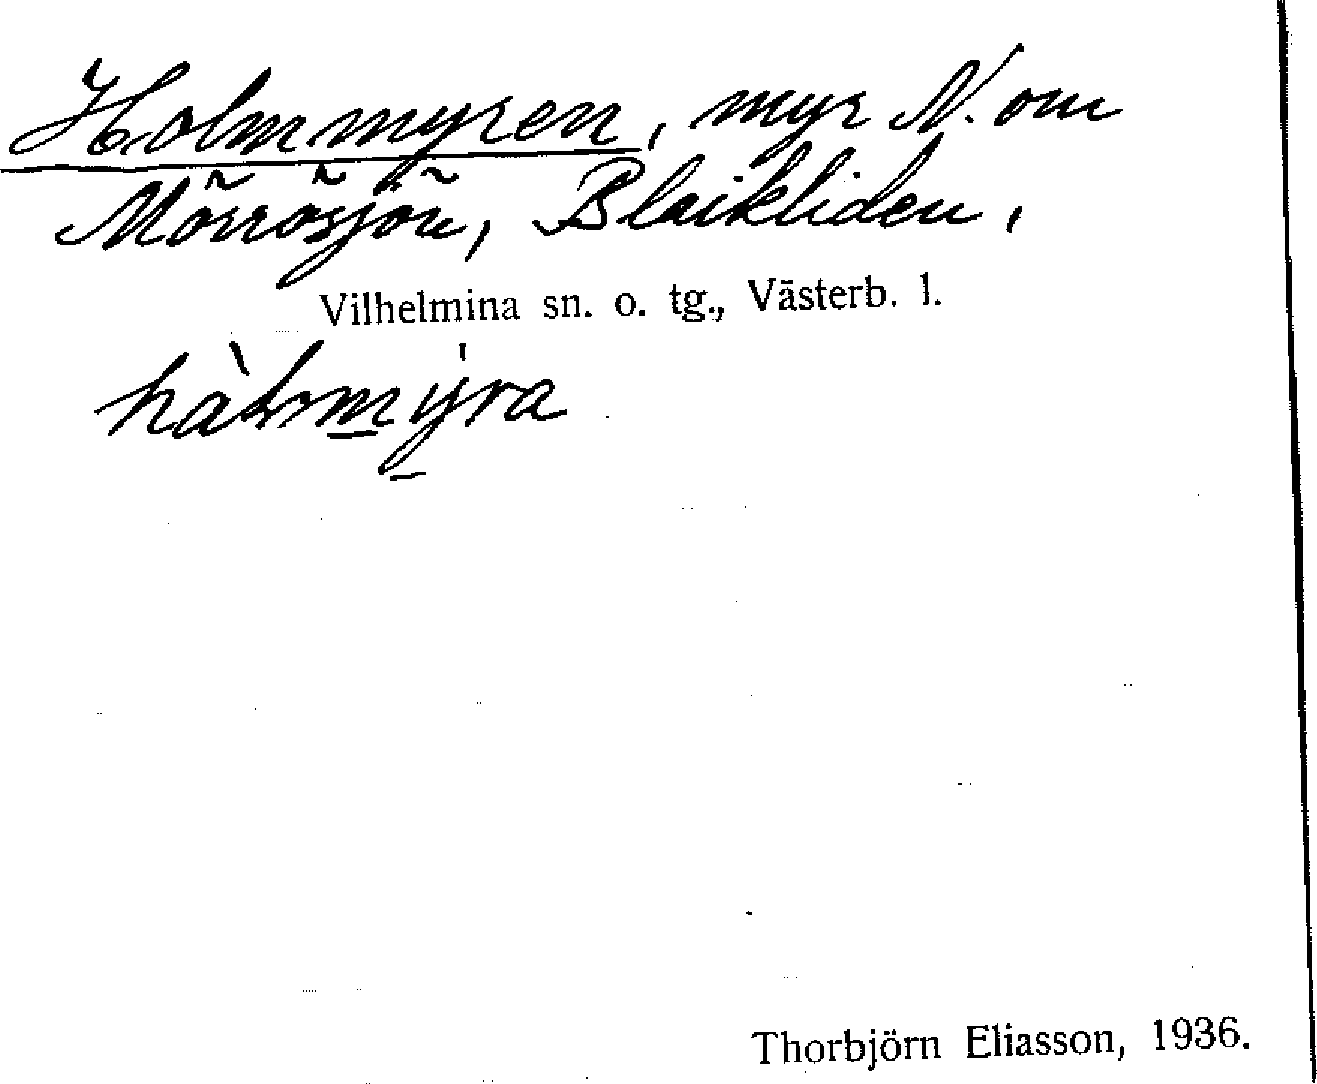 Holmmyren, myr N. om
Mörrösjön, Blaikliden,
Vilhelmina sn. o. tg., Västerb. l.
Thorbjörn Eliasson, 1936.